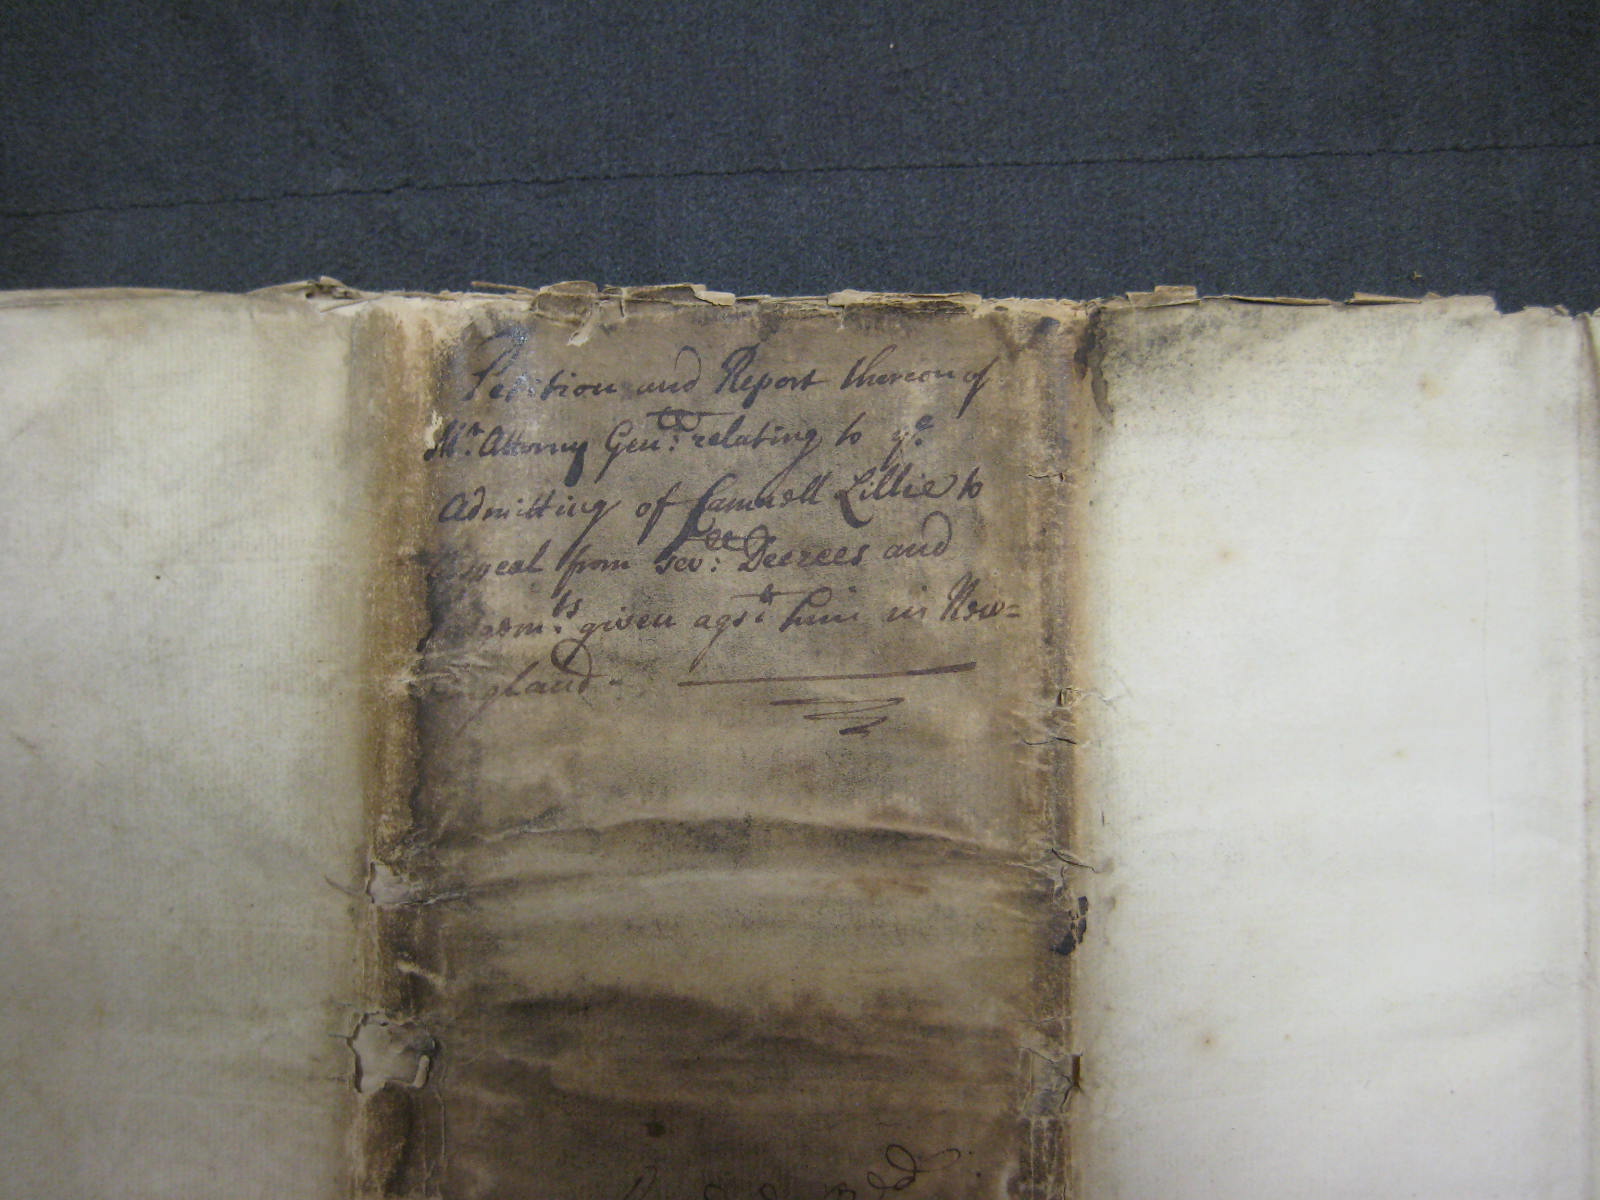 Petition and Report thereon of
Mr. Attorny Genll: relating to ye.
Admitting of Samuell Lillie to
Appeal from Sevll: Decrees and
Judgm:ts given agst. him in New=
England.